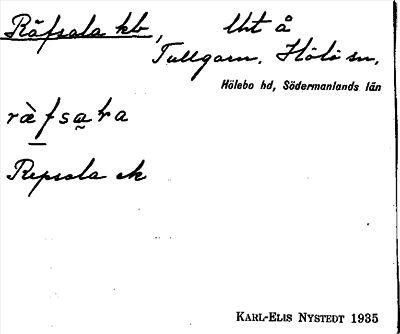 Räfsala kb, lht å
Tullgarn. Hölö sn.
Hölebo hd, Södermanlands län
ræ̀fsaɫa
Repsala ek
KARL-ELIS NYSTEDT 1935